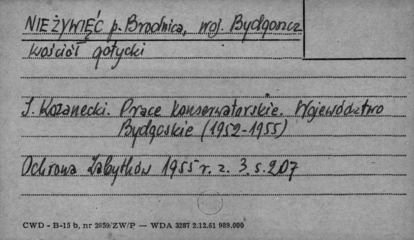 NIEŻYWIĘĆ p. Brodnica, woj. Bydgoszcz
kościół gotycki
J. Kozanecki. Prace konserwatorskie. Województwo
Bydgoskie (1952-1955)
Ochrona Zabytków 1955 r. z. 3, s. 207
CWD - B-15 b, nr 2659/ZW/P — WDA 3287 2.12.61 989.000